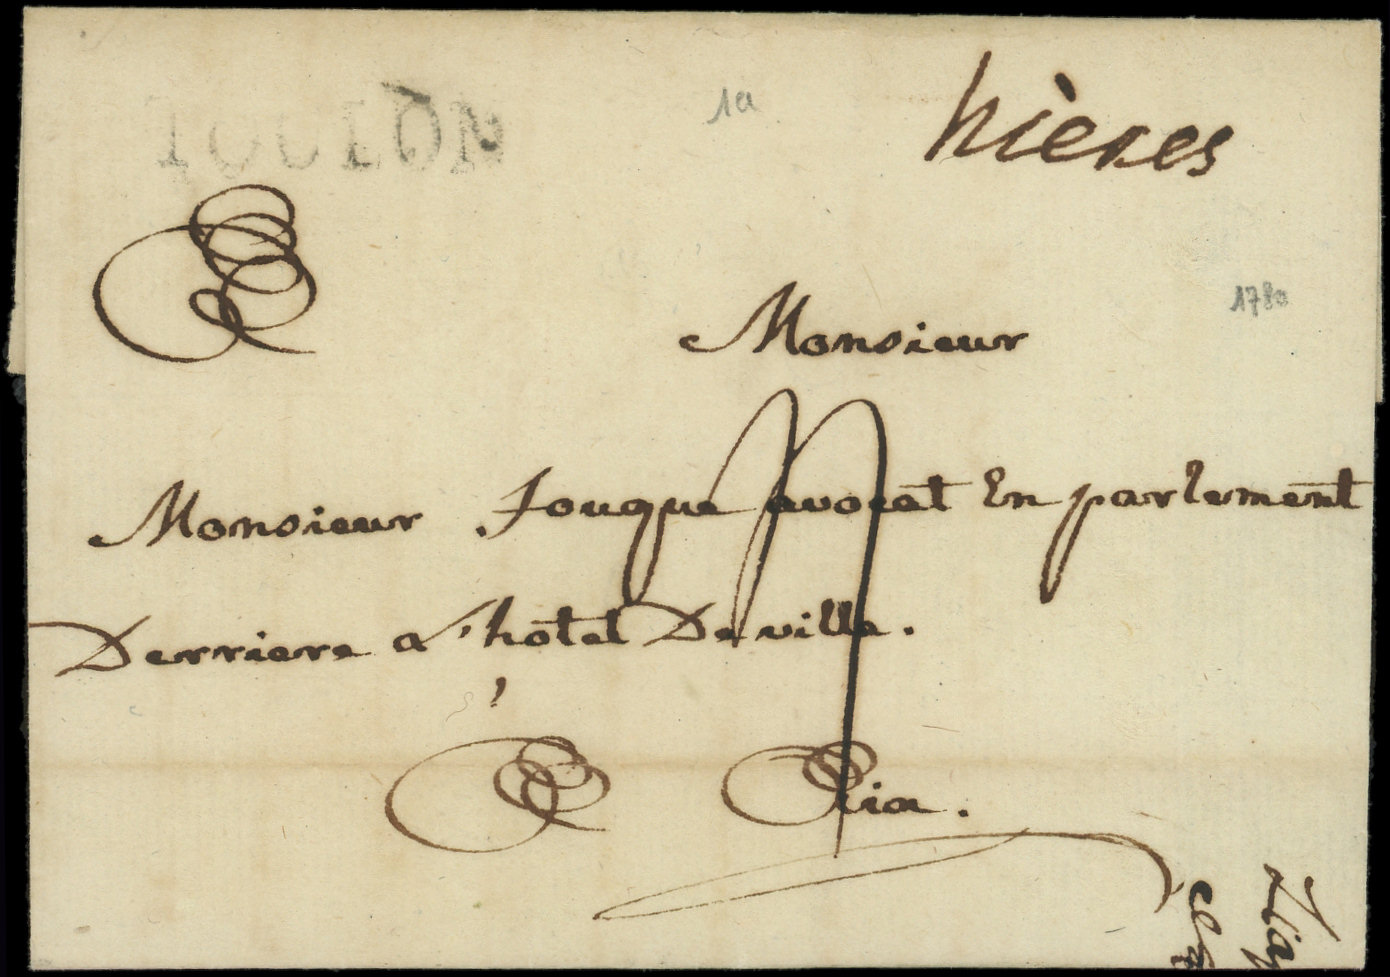 TOULON
1a
hières
1780
Monsieur
Monsieur Jouque avocat En parlement
Derriere a l'hôtel De ville.